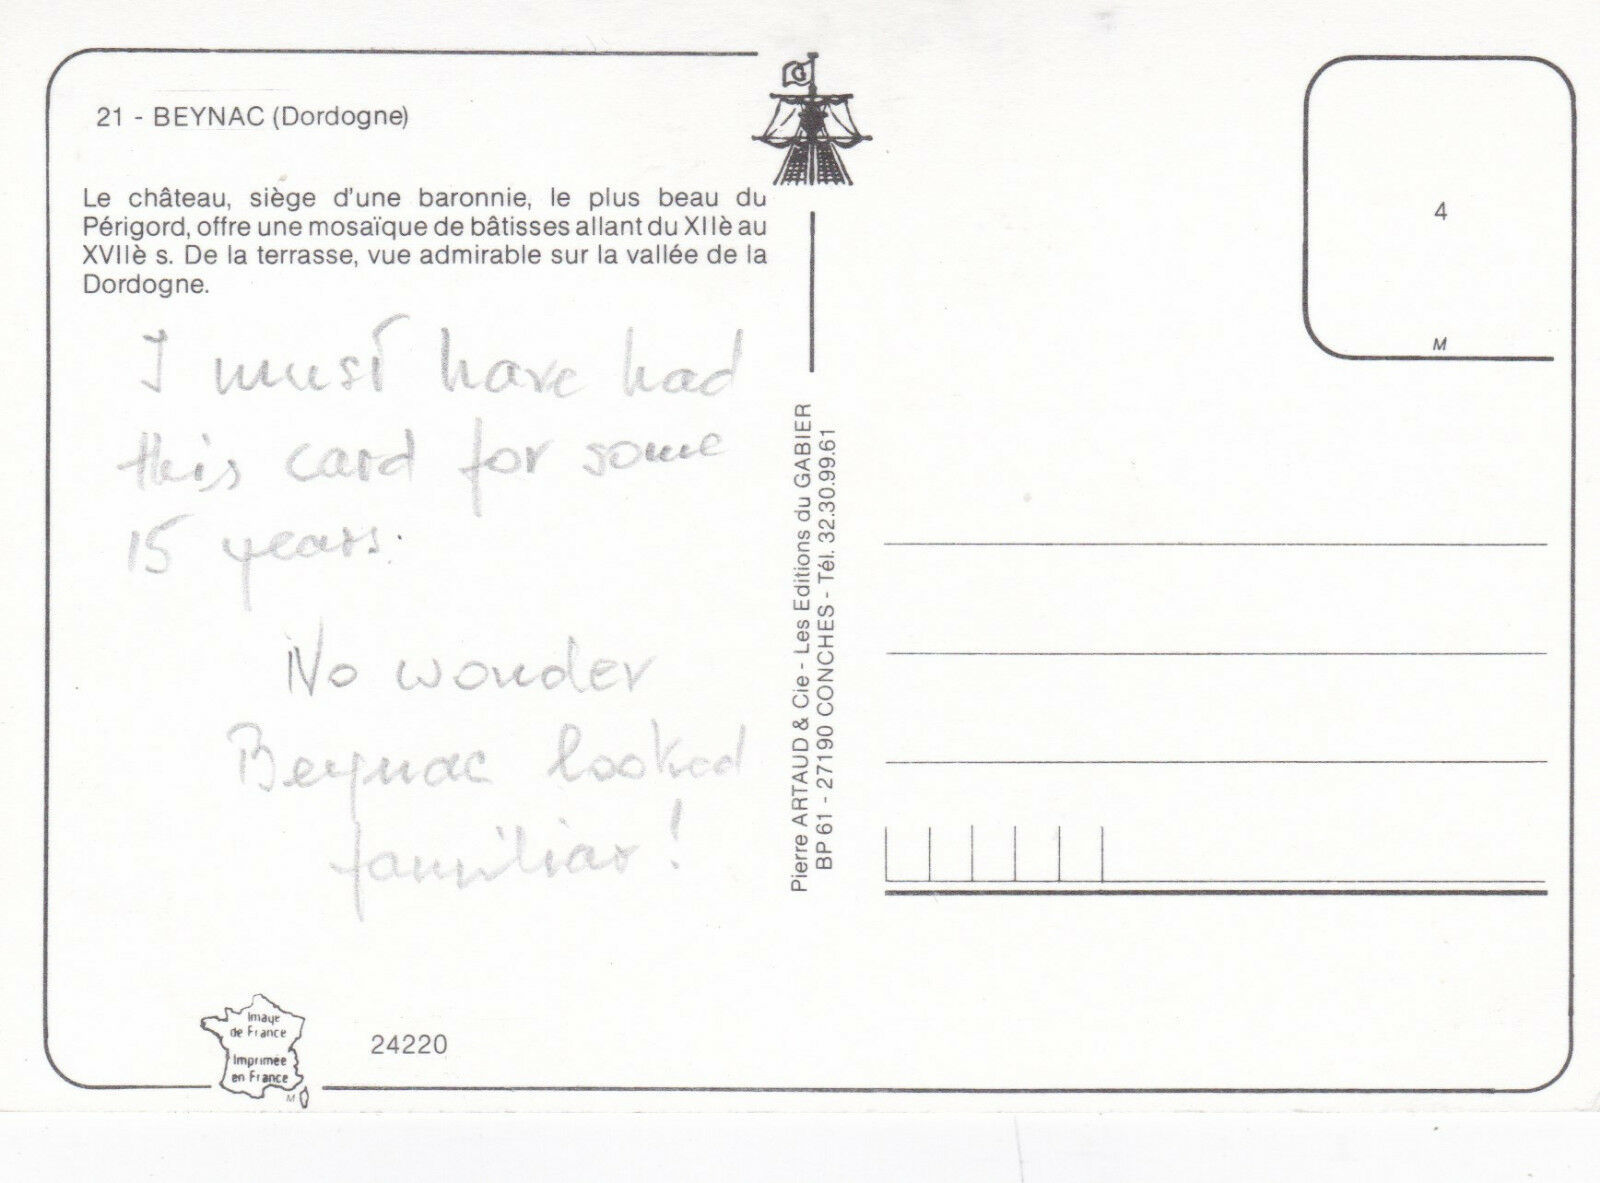 21 - BEYNAC (Dordogne)
Le château, siège d'une baronnie, le plus beau du
Périgord, offre une mosaïque de bâtisses allant du XIIè au
XVIIè s. De la terrasse, vue admirable sur la vallée de la
Dordogne.
I must have had
this card for some
15 years.
No wonder
Beynac looked
familiar!
Image
de France
Imprimée
en France
M
24220
G
Pierre ARTAUD & Cie - Les Editions du GABIER
BP 61 - 27190 CONCHES - Tél. 32.30.99.61
4
M